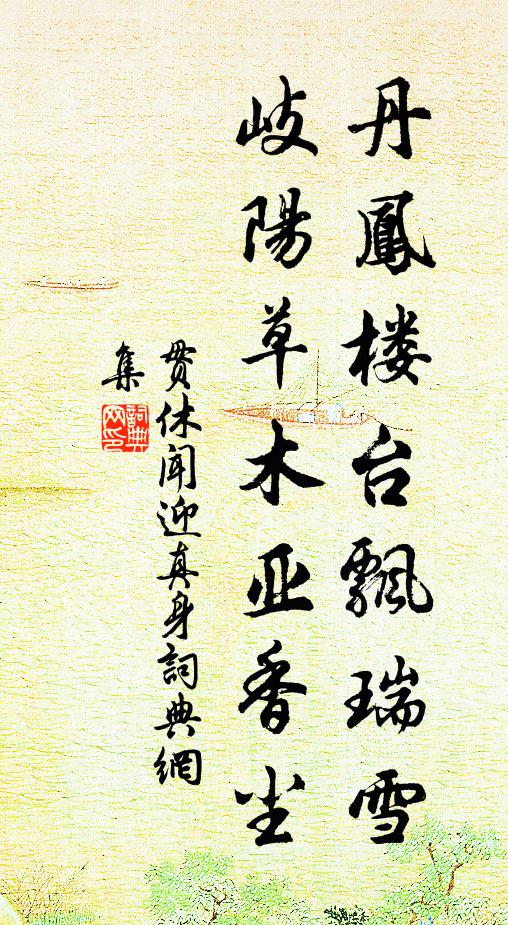 丹鳳楼台飄瑞雪
岐陽草木亚香尘
贯休闻迎真身詞典網
集
詞典网印